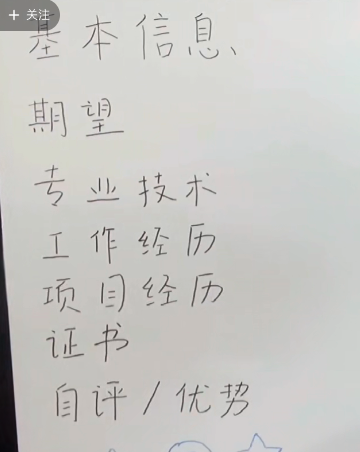 + 关注
基本信息、
期望
专业技术
工作经历
项目经历
证书
自评/优势